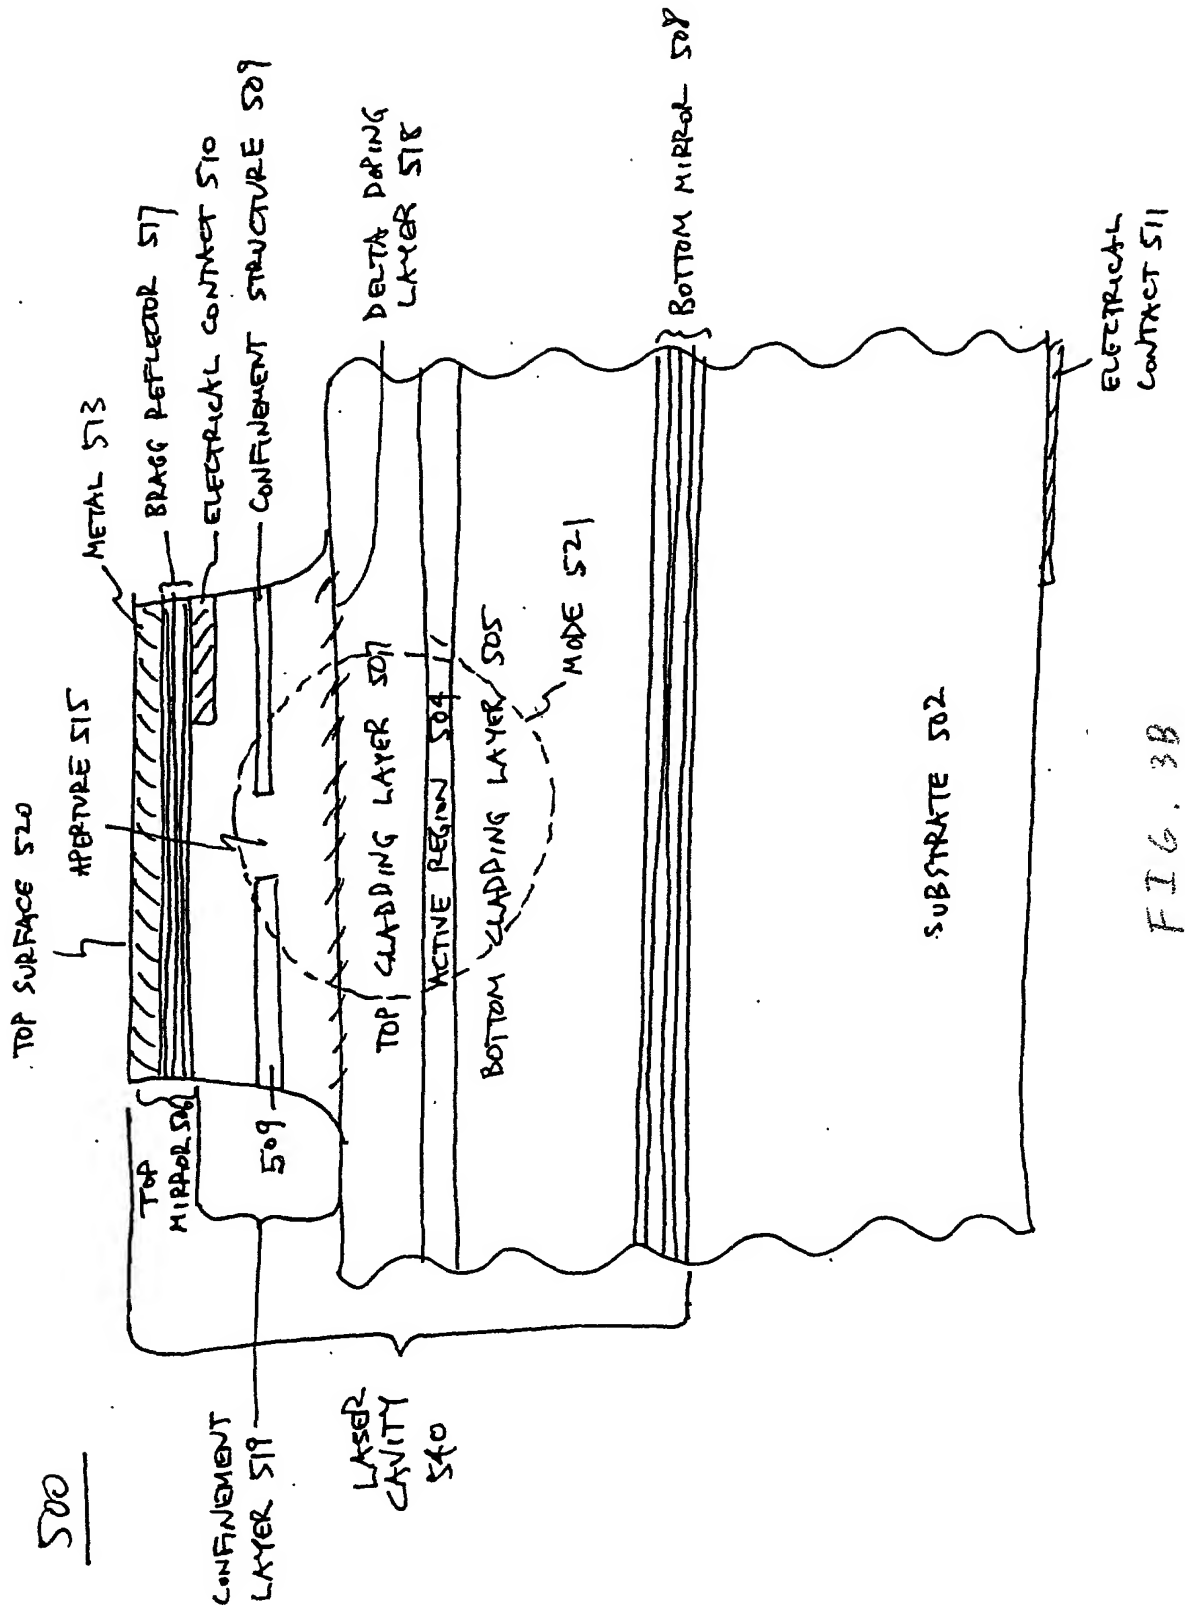 500
TOP SURFACE 520
APERTURE 515
METAL 513
BRAGG REFLECTOR 517
ELECTRICAL CONTACT 510
CONFINEMENT STRUCTURE 509
DELTA DOPING
LAYER 518
TOP
MIRROR 506
509
CONFINEMENT
LAYER 519
LASER
CAVITY
540
TOP CLADDING LAYER 507
ACTIVE REGION 504
BOTTOM CLADDING LAYER 505
MODE 521
BOTTOM MIRROR 508
SUBSTRATE 502
ELECTRICAL
CONTACT 511
FIG. 3B